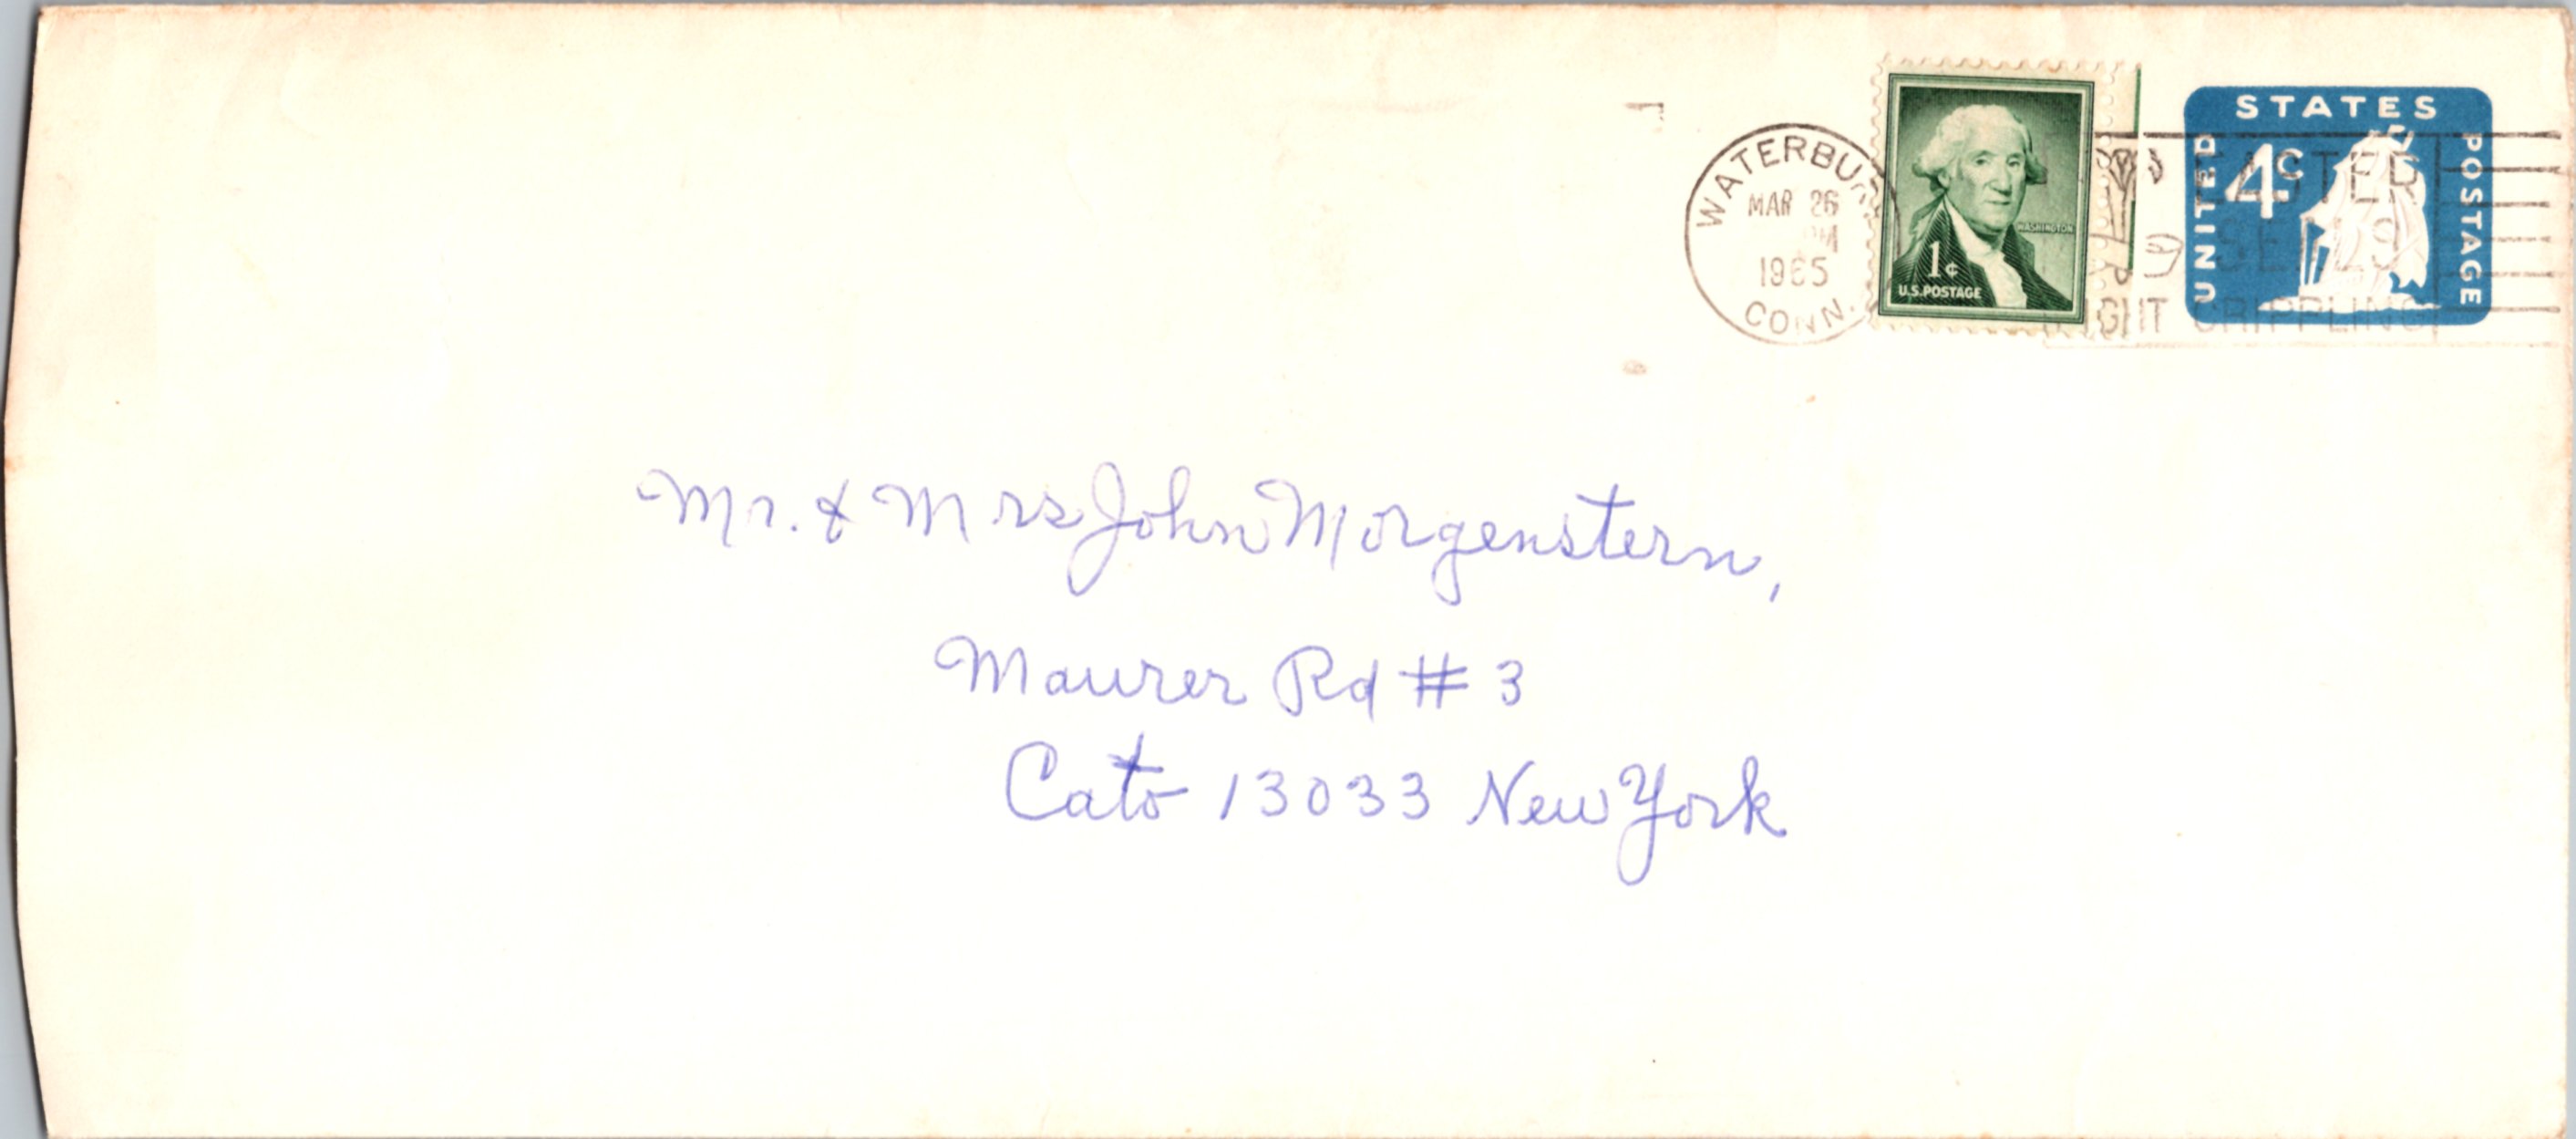 WATERBURY
MAR 26
PM
1965
CONN.
WASHINGTON
1¢
U.S. POSTAGE
UNITED STATES POSTAGE
4¢
EASTER
SEALS
FIGHT CRIPPLING
Mr. & Mrs John Morgenstern,
Maurer Rd # 3
Cato 13033 New York